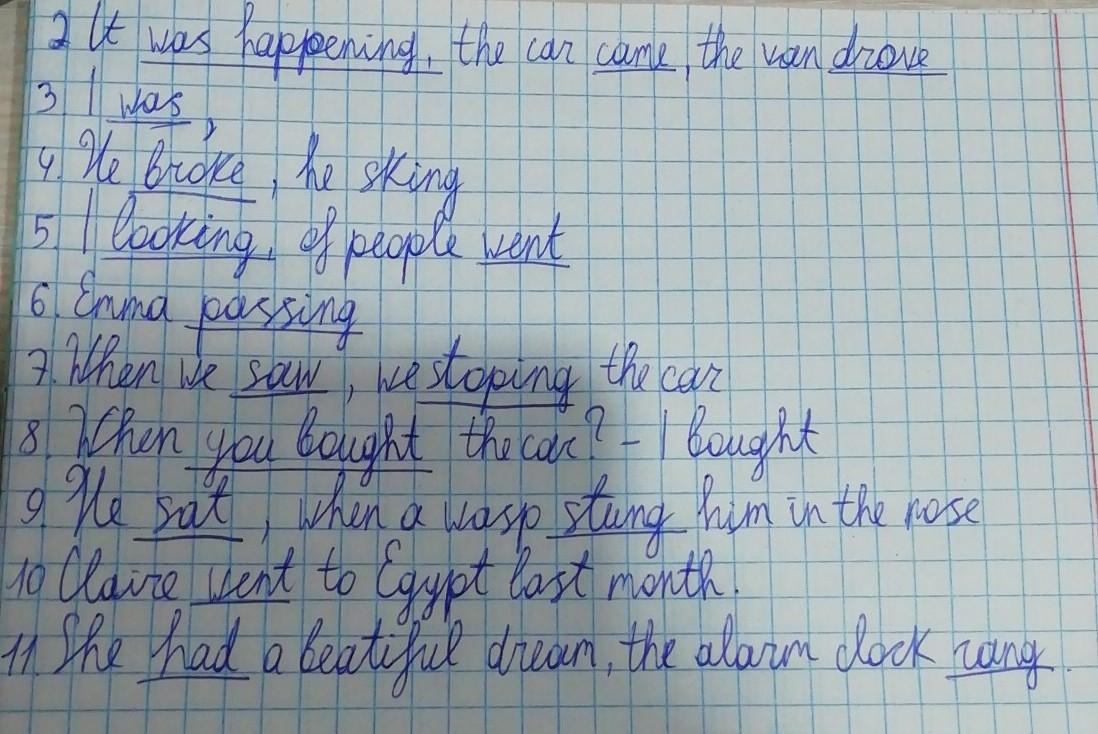 2 It was happening, the car came, the van drove
3 I was,
4. He broke, he sking
5. I looking, of people went
6. Emma passing
7. When we saw, we stoping the car
8. When you bought the car? - I bought
9. He sat, when a wasp stung him in the nose
10 Claire went to Egypt last month.
11. She had a beatiful dream, the alarm clock rang.